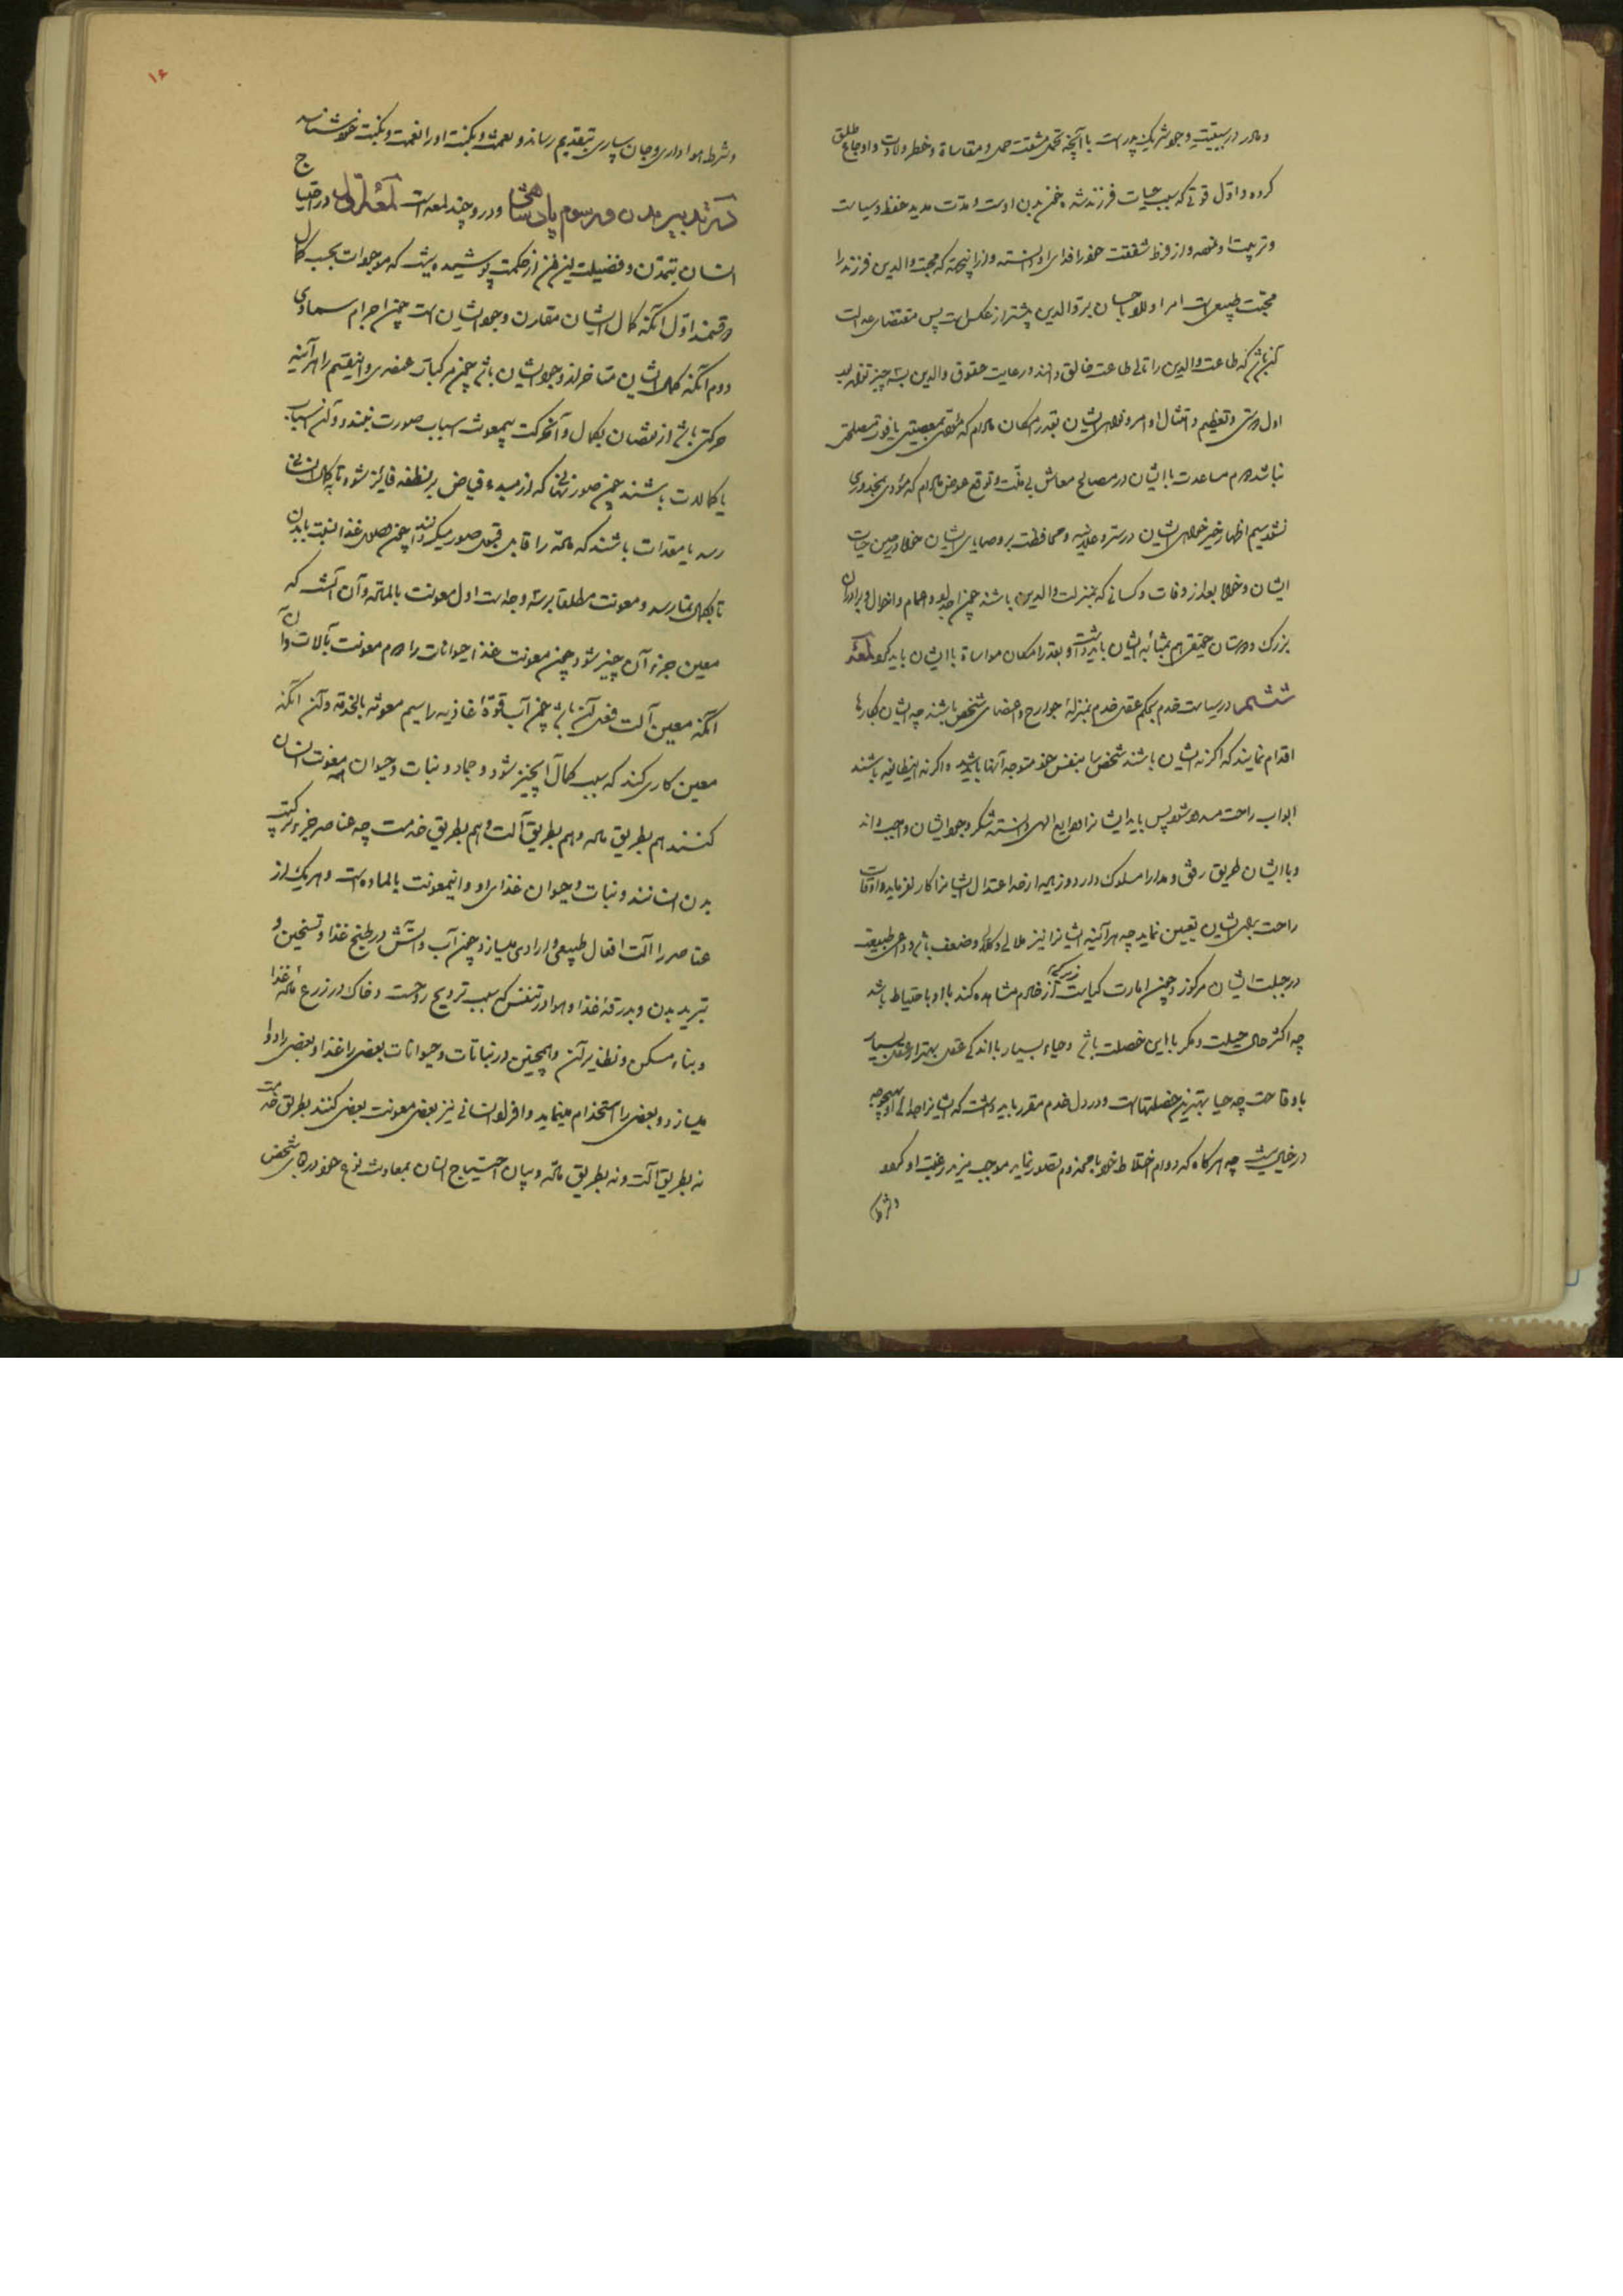 و مادر در سببیت وجود شریک پدر است با آنچه تحمل مشقت حمل و مقاساة و خطر ولادت و اوجاع طلق
کرده و اول قوتی که سبب حیات فرزند شده خون بدن اوست و مدت مدید حفظ و سیاست
و تربیت او نموده و از فرط شفقت خود را فدای او دانسته و از اینجهة که محبت والدین فرزند را
محبت طبیعی است امر اولاد باحسان بر والدین بیشتر از عکس است پس مقتضای عدالت
آن باشد که طاعت والدین را تالی طاعت خالق دانند و رعایت حقوق والدین بسه چیز تواند بود
اول دوستی و تعظیم و امتثال اوامر و نواهی ایشان بقدر امکان مادام که مؤدی بمعصیتی یا فوت مصلحتی
نباشد دوم مساعدت با ایشان در مصالح معاش بی منت و توقع عوض مادام که مؤدی بمحذوری
نشود سیم اظهار خیر خواهی ایشان در سر و علانیه و محافظت بر وصایای ایشان خواه در حین حیات
ایشان و خواه بعد از وفات و کسانی که بمنزلت والدین باشند چون اجداد و اعمام و اخوال و برادران
بزرگ و دوستان حقیقی هم بمثابه ایشان باید داشت و بقدر امکان مواساة با ایشان باید کرد لمعهٔ
ششم در سیاست خدم بحکم عقل خدم بمنزلهٔ جوارح و اعضای شخص باشند چه ایشان بکارها
اقدام نمایند که اگر نه ایشان باشند شخص را بنفس خود متوجه آنها باید شد و اگر نه اینطایفه باشند
ابواب راحت مسدود شود پس باید ایشانرا ودایع الهی دانسته شکر وجود ایشان واجب داند
و با ایشان طریق رفق و مدارا مسلوک دارد و زیاده از حد اعتدال ایشانرا کار نفرماید و اوقات
راحت برای ایشان تعیین نماید چه هر آئینه ایشانرا نیز ملالی و کلالی و ضعف باشد و دواعی طبیعت
در جبلت ایشان مرکوز و چون امارت کیاست و زیرکی از خادم مشاهده کند با او با احتیاط باشد
چه اکثر حال حیلت و مکر با این خصلت باشد و حیاء بسیار با اندکی عقل بهتر از عقل بسیار
با وقاحت چه حیا بهترین خصلتهاست و در دل خدم مقرر باید داشت که ایشانرا جدائی از او بهیچوجه
در خیال نیست چه هر گاه که دوام اختلاط خود با مخدوم تصور نماید موجب مزید رغبت او گردد
و شرط
۱۶
و شرط هواداری و جان سپاری بتقدیم رساند و نعمت و نکبت او را نعمت و نکبت خود شناسد
در تدبیر مدن و رسوم پادشاهی و در او چند لمعه است لمعهٔ اول در احتیاج
انسان بتمدن و فضیلت این فن از حکمت پوشیده نیست که موجودات بحسب کمال
دو قسمند اول آنکه کمال ایشان مقارن وجود ایشان است چون اجرام سماوی
دوم آنکه کمال ایشان متأخر از وجود ایشان باشد چون مرکبات عنصری و اینقسم را هر آینه
حرکتی باشد از نقصان بکمال و آنحرکت بیمعونت اسباب صورت نبندد و آن اسباب
یا کمالات باشند چون صورتهائی که از مبدء فیاض بر نطفه فایز شود تا بکمال انسانی
رسد یا معدات باشند که ماده را قابل قبول صور میگردانند چون وصول غذا نسبت بابدان
تا بکمال نما رسد و معونت مطلقا بر سه وجه است اول معونت بالماده و آن آنست که
معین جزء آن چیز شود چون معونت غذا حیوانات را دوم معونت بآلات و آن
آنکه معین آلت فعل آن باشد چون آب قوهٔ غاذیه را سیم معونة بالخدمة و آن آنکه
معین کاری کند که سبب کمال آنچیز شود و جماد و نبات و حیوان همه معونت انسان
کنند هم بطریق ماده و هم بطریق آلت و هم بطریق خدمت چه عناصر جزء ترکیب
بدن انسانند و نبات و حیوان غذای او و اینمعونت بالماده است و هر یک از
عناصر را آلت افعال طبیعی و ارادی میسازد چون آب و آتش در طبخ غذا و تسخین و
تبرید بدن و بدرقهٔ غذا و هوا در تنفس که سبب ترویح روحست و خاک در زرع مادهٔ غذا
و بناء مسکن و نظایر آن و همچنین در نباتات و حیوانات بعضی را غذا و بعضی را دوا
میسازد و بعضی را استخدام مینماید و افراد انسانی نیز بعضی معونت بعضی کنند بطریق خدمت
نه بطریق آلت و نه بطریق ماده و بیان احتیاج انسان بمعاونت نوع خود در بقای شخص